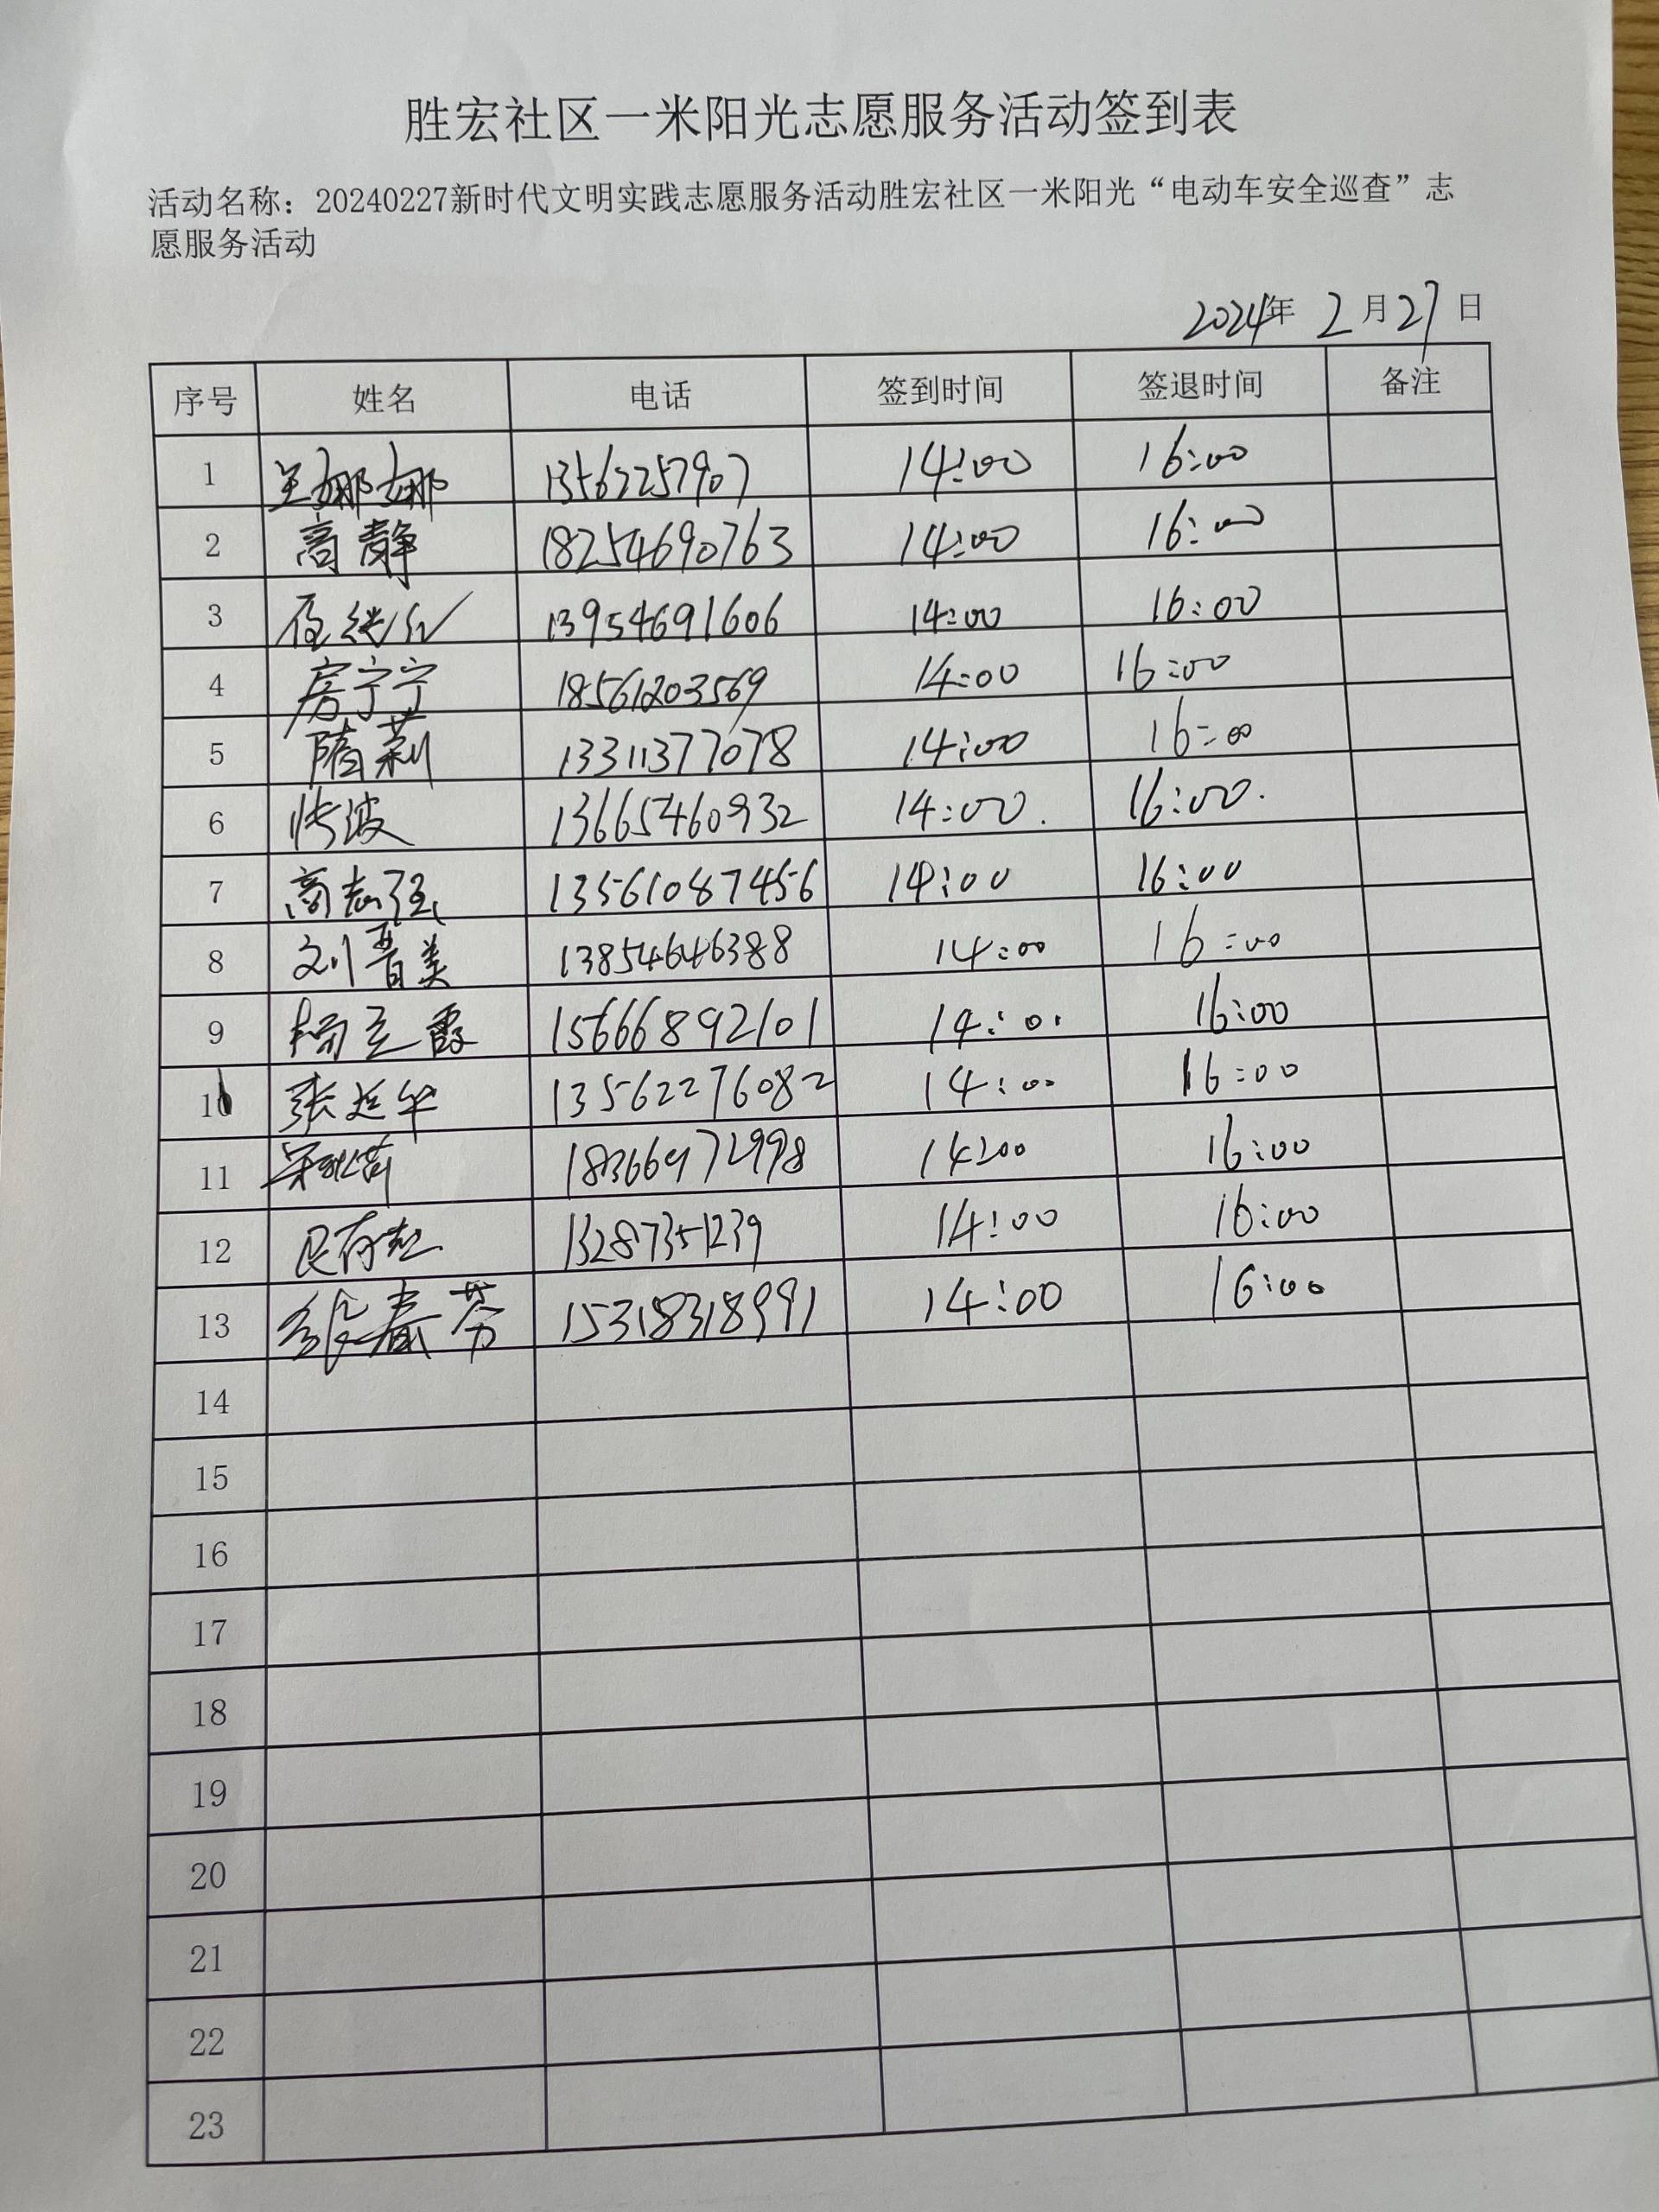 胜宏社区一米阳光志愿服务活动签到表
活动名称：20240227新时代文明实践志愿服务活动胜宏社区一米阳光“电动车安全巡查”志
愿服务活动
2024年 2月27日
序号 姓名 电话 签到时间 签退时间 备注
1 王娜娜 13562257907 14:00 16:00
2 高静 18254690763 14:00 16:00
3 13954691606 14:00 16:00
4 房宁宁 18561203569 14:00 16:00
5 隋莉 13311377078 14:00 16:00
6 张波 13665460932 14:00. 16:00.
7 高志强 13561087456 14:00 16:00
8 刘晋美 13854646388 14:00 16:00
9 杨立霞 15666892101 14:00 16:00
10 张延华 13562276082 14:00 16:00
11 18366972998 14:00 16:00
12 13287351239 14:00 16:00
13 徐春芳 15318318991 14:00 16:00
14
15
16
17
18
19
20
21
22
23